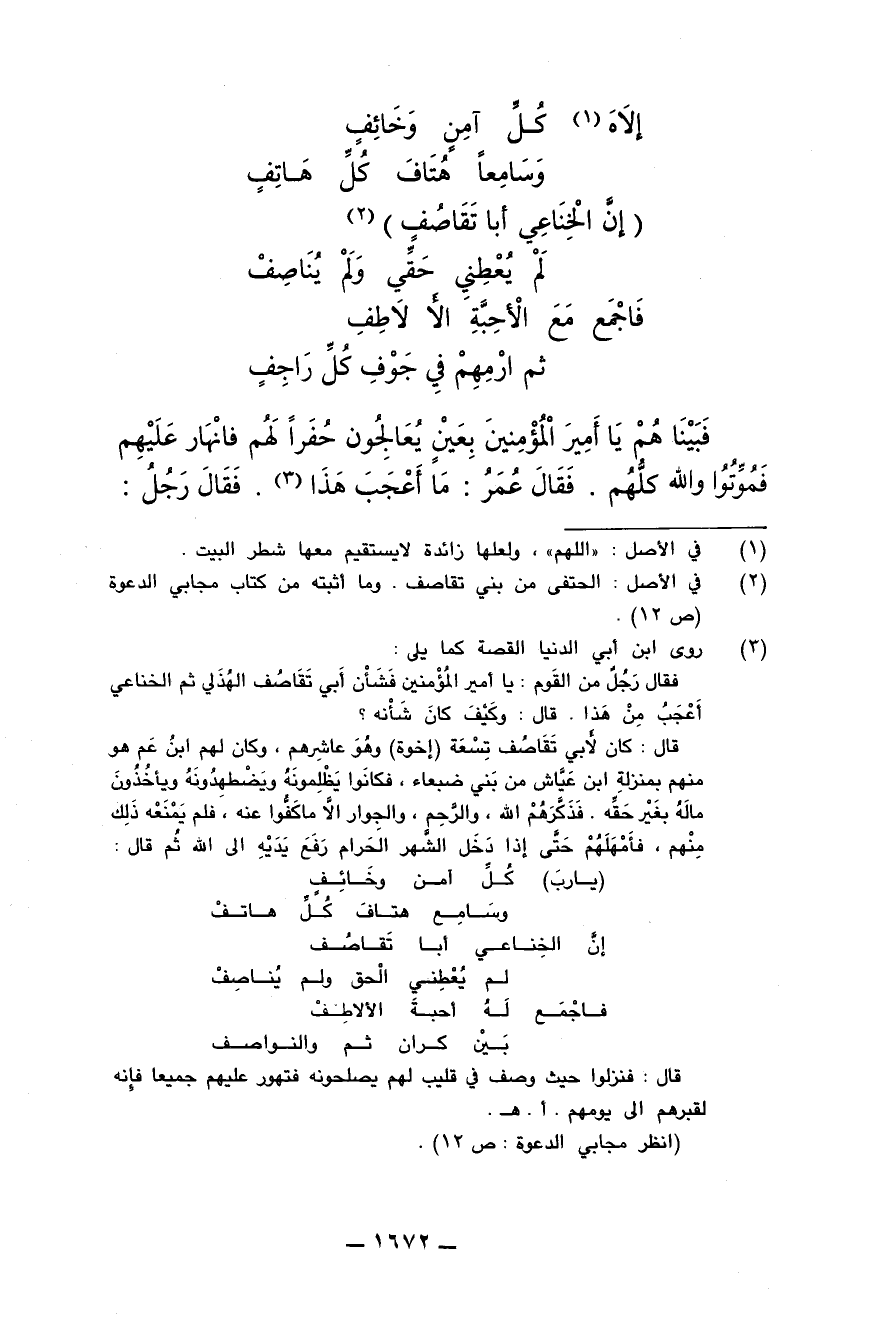 إلَاهَ (١) كُـلِّ آمِنٍ وَخَائِفٍ
وَسَامِعاً هُتَافَ كُلِّ هَـاتِفٍ
( إنَّ الْخِنَاعِي أبا تَقَاصُفٍ ) (٢)
لَمْ يُعْطِنِي حَقِّي وَلَمْ يُنَاصِفْ
فَاجْمَع مَعَ الْأحِبَّةِ الأَّ لَاطِفِ
ثم ارْمِهِمْ فِي جَوْفِ كُلِّ رَاجِفٍ
فَبَيْنَا هُمْ يَا أَمِيرَ الْمُؤْمِنينَ بِعَيْنٍ يُعَالِجُون حُفَراً لَهُم فانْهار عَلَيْهِم
فَمُوِّتُوا والله كلُّهُم . فَقَالَ عُمَرُ : مَا أَعْجَبَ هَذَا (٣) . فَقَالَ رَجُلُ :
(١) في الأصل : «اللهم» ، ولعلها زائدة لايستقيم معها شطر البيت .
(٢) في الأصل : الحتفى من بني تقاصف . وما أثبته من كتاب مجابي الدعوة
(ص ١٢) .
(٣) روى ابن أبي الدنيا القصة كما يلي :
فقال رَجُلٌ من القَوم : يا أمير المُؤْمنين فَشَأْن أَبي تَقَاصُف الهُذَلي ثم الخناعي
أعْجَبُ مِنْ هَذا . قال : وكَيْفَ كانَ شَأنه ؟
قال : كان لأبي تَقَاصُف تِسْعَة (إخوة) وهُوَ عاشِرهم ، وكان لهم ابنُ عَم هو
منهم بمنزلةِ ابن عَيَّاش من بَني ضبعاء ، فكانوا يَظْلِمونَهُ ويَضْطهدُونَهُ ويأخُذُونَ
مالَهُ بغَيْر حَقِّه . فَذَكَّرَهُمْ الله ، والرَّحِم ، والجوار الاَّ ماكَفُّوا عنه ، فلم يَمْنَعْه ذَلِك
مِنْهم ، فأمْهَلَهُمْ حَتَّى إذا دَخَل الشَّهر الحَرام رَفَعَ يَدَيْهِ الى الله ثُم قال :
(يـاربَ) كُـلِّ آمـن وخَـائِـفٍ
وسَـامِـع هتـافَ كُـلِّ هـاتـفْ
إنَّ الخِنـاعـي أبـا تَقـاصُـف
لـم يُعْطِنـي الْحق ولـم يُنـاصِفْ
فـاجْمَـع لَـهُ أحبـةَ الألاطِـفْ
بَـيْنَ كـران ثـم والنـواصـف
قال : فنزلوا حيث وصف في قليب لهم يصلحونه فتهور عليهم جميعا فإنه
لقبرهم الى يومهم . أ . هـ .
(انظر مجابي الدعوة : ص ١٢) .
ــ ١٦٧٢ ــ